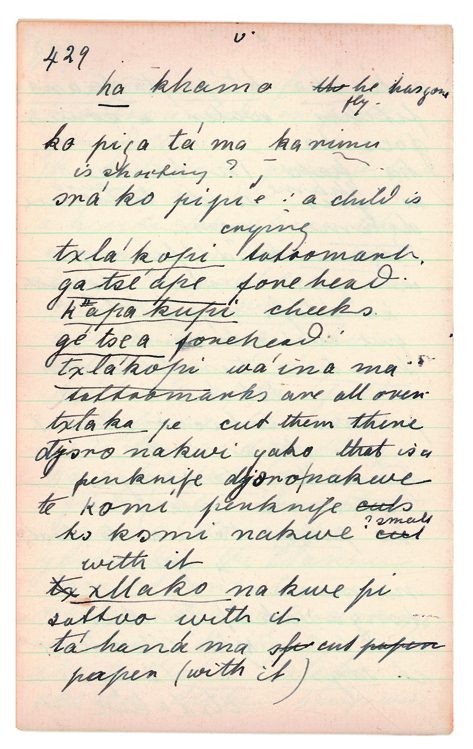 429
ha khamo he has gone
fly.
ko piça tá ma karimu
is shocking ?
srá ko pipi'e : a child is
crying
txla'kopi tattoomark.
gatse ape forehead.
k"apa kupi cheeks.
gétsea forehead.
txlákopi wáina ma
tattoomarks are all over
txlaka pe cut them there
djoro nakwi yako that is a
penknife djoro/nakwe
te komi penknife cuts
ko komi nakwe ? small cut
with it
tx xllako nakwe pi
tattoo with it
tá haná ma cut paper
paper (with it)